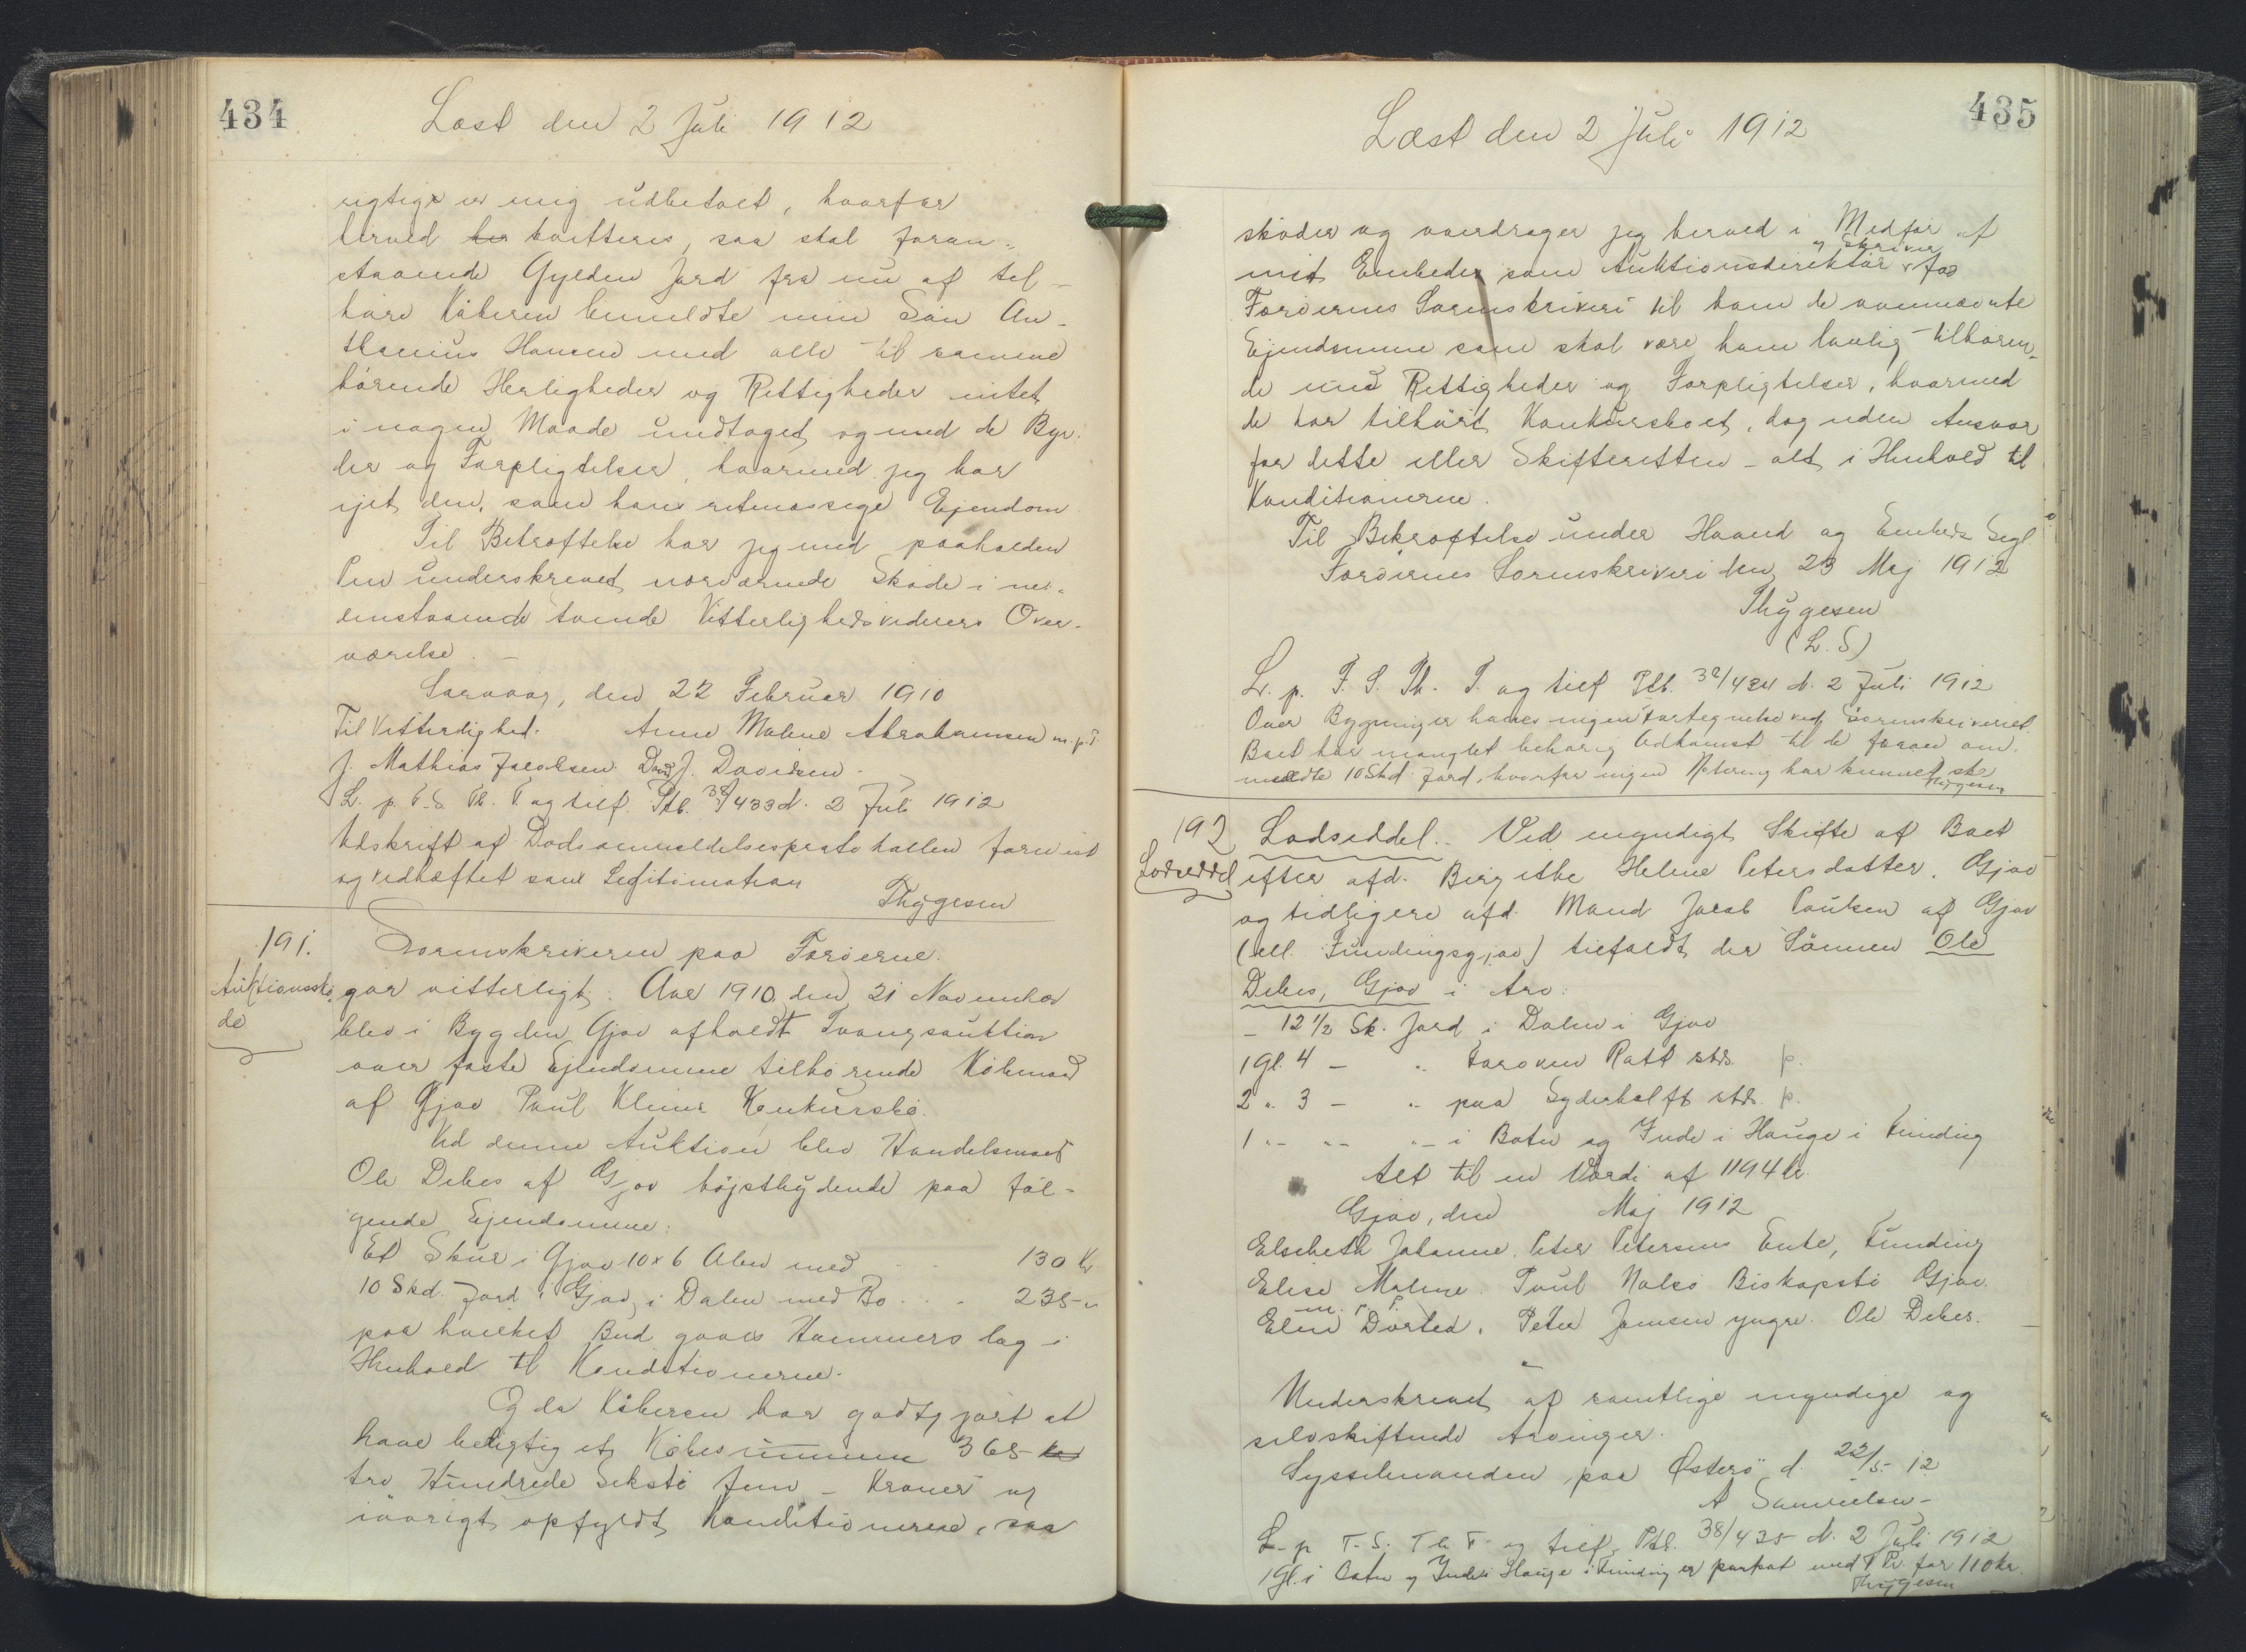 434
Læst den 2 Juli 1912
rigtigt er mig udbetalt, hvorfor
herved her kvitteres, saa skal foran-
staaende Gylden Jord fra nu af til-
høre Køberen bemeldte min Søn An-
thanius Hansen med alle til samme
hørende Herligheder og Rettigheder intet
i nogen Maade undtaget og med de Byr-
der og Forpligtelser, hvormed jeg har
ejet den, som hans retmæssige Ejendom
Til Bekræftelse har jeg med paaholden
Pen underskrevet nærværende Skøde i ne-
denstaaende tvende Vitterlighedsvidners Over-
værelse. –
Sørvaag, den 22 Februar 1910
Til Vitterlighed. Anne Malene Abrahamsen m. p. P.
J. Mathias Jacobsen. David J. Davidsen.
L. p. F. S. Th. T. og tilf. Ptb. 38/433 d. 2 Juli 1912
Udskrift af Dødsanmeldelsesprotokollen forevist
og vedhæftet som Legitimation
Thygesen
191.
Auktionsskø
de
Sorenskriveren paa Færøerne.
gør vitterligt: Aar 1910 den 21 November
blev i Bygden Gjov afholdt Tvangsauktion
over faste Ejendomme tilhørende Købmand
af Gjov Poul Kleins Konkursbo.
Ved denne Auktion blev Handelsmand
Ole Debes af Gjov højstbydende paa føl-
gende Ejendomme:
Et Skur i Gjov 10 x 6 Alen med 130 Kr.
10 Skd. Jord i Gjov, i Dalen med Bo . . . 235 "
paa hvilket Bud gaves Hammerslag i
Henhold til Konditionerne.
Og da Køberen har godtgjort at
have berigtiget Købesummen 365 Kr
tre Hundrede Seksti fem – Kroner og
iøvrigt opfyldt Konditionerne, saa
435
Læst den 2 Juli 1912
skøder og overdrager jeg herved i Medfør af
og Skriver
mit Embede som Auktionsdirektør for
Færøernes Sorenskriveri til ham de ovennævnte
Ejendomme som skal være ham lovlig tilhøren-
de med Rettigheder og Forpligtelser, hvormed
de har tilhørt Konkursboet, dog uden Ansvar
for dette eller Skifteretten – alt i Henhold til
Konditionerne.
Til Bekræftelse under Haand og Embeds Segl.
Færøernes Sorenskriveri den 23 Maj 1912
Thygesen
(L. S)
L. p. F. S. Th. T. og tilf Ptb. 38/434 d. 2 Juli 1912
Over Bygninger haves ingen Fortegnelse ved Sorenskriveriet.
Boet har manglet behørig Adkomst til de foran om-
meldte 10 Skd. Jord, hvorfor ingen Notering har kunnet ske
Thygesen
192
Lodseddel
Lodseddel. – Ved myndigt Skifte af Boet
efter afd. Birgithe Helene Petersdatter. Gjov
og tidligere afd. Mand Jacob Poulsen af Gjov
(ell. Fundingsgjov) tilfaldt der Sønnen Ole
Debes, Gjov i Arv:
– 12 1/2 Sk. Jord i Dalen i Gjov
1 Gl. 4 – " Foroven Ratt stds. p.
2 " 3 – " paa Syderhalft stds. p.
1 " – " – " – i Botn og Inde i Hauge i Funding
Alt til en Værdi af 1194 kr.
Gjov, den Maj 1912
Elsebeth Johanne. Peter Petersens Enke, Funding
Elise Malene. Poul Nolsø Biskopstø Gjov.
m. p. P.
Elin Dorthea. Peter Joensen yngre. Ole Debes.
Underskrevet af samtlige myndige og
selvskiftende Arvinger.
Sysselmanden paa Østerø d. 22/5 - 12
A Samuelsen –
L. p. F. S. Th. T. og tilf. Ptb. 38/435 d. 2 Juli 1912
1 Gl. i Botn og Inde i Hauge i Funding er pantsat med 1 Pr. for 110 kr.
Thygesen